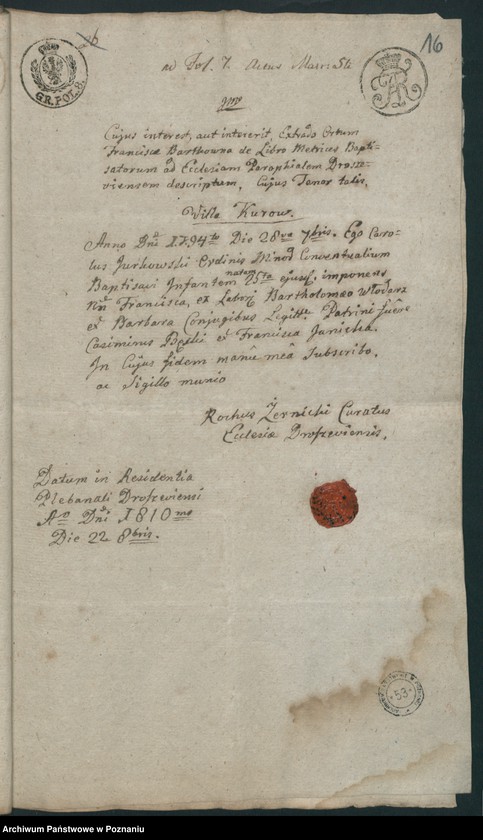 16
GR.POL.8.
ad Fol. 7. Actus
Cujus interest, aut intererit, Extrado Ortum
Franciscæ Barthowna de Libro Metrices Bapti-
satorum ad Ecclesiam Parophialem Drosse-
viensem descriptum, Cujus Tenor talis.
Villa Kurow.
Anno Dni 1794to Die 28va 7bris. Ego Caro-
lus Jurkowski Ordinis Minor Conventualium
natam
Baptisavi Infantem 25ta ejusd. imponens
Nn Francisca, ex Labor Bartholomæo Włodarz
et Barbara Conjugibus Legitt. Patrini fuere
Casimirus et Francisca Janicka.
In Cujus fidem manu mea Subscribo,
ac Sigillo munio
Rochus Żernicki Curatus
Ecclesiæ Droszeviensis.
Datum in Residentia
Plebanali Droszeviensi
Ao Dni 1810mo
Die 22 8bris.
53
Archiwum Państwowe w Poznaniu
szukajwarchiwach.pl